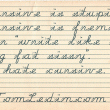 ursive is stupid
ursive is frem
n "write like
g fat sissy
hate cursive
TomZedim.com